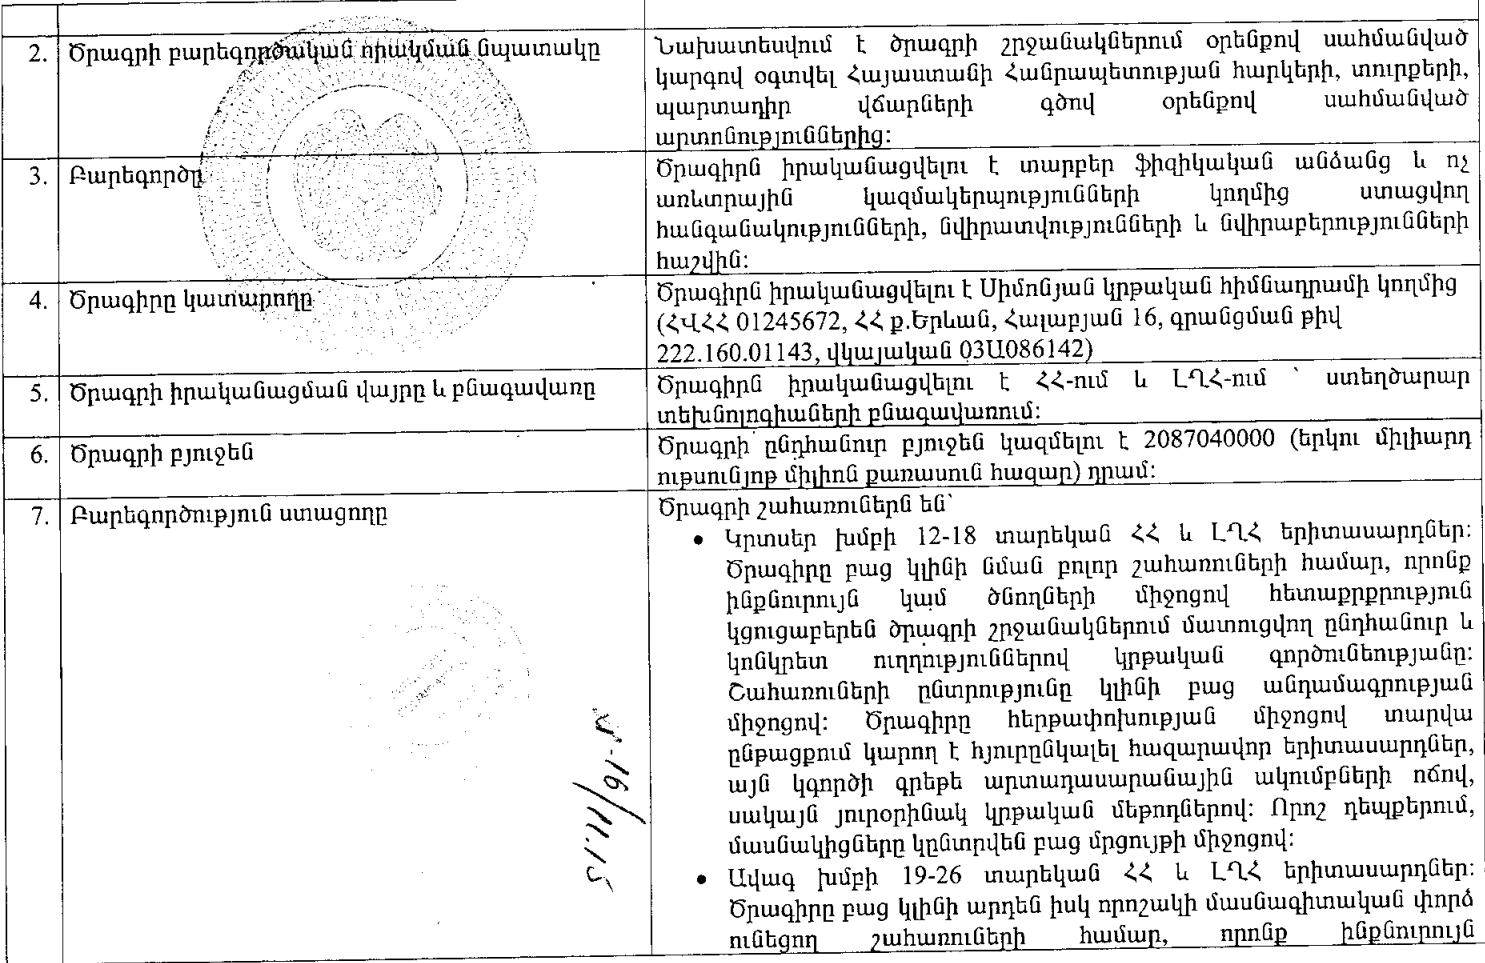 2. Ծրագրի բարեգործական որակման նպատակը
Նախատեսվում է ծրագրի շրջանակներում օրենքով սահմանված
կարգով օգտվել Հայաստանի Հանրապետության հարկերի, տուրքերի,
պարտադիր վճարների գծով օրենքով սահմանված
արտոնություններից:
3. Բարեգործը
Ծրագիրն իրականացվելու է տարբեր ֆիզիկական անձանց և ոչ
առևտրային կազմակերպությունների կողմից ստացվող
հանգանակությունների, նվիրատվությունների և նվիրաբերությունների
հաշվին:
4. Ծրագիրը կատարողը
Ծրագիրն իրականացվելու է Սիմոնյան կրթական հիմնադրամի կողմից
(ՀՎՀՀ 01245672, ՀՀ ք.Երևան, Հալաբյան 16, գրանցման թիվ
222.160.01143, վկայական 03Ա086142)
5. Ծրագրի իրականացման վայրը և բնագավառը
Ծրագիրն իրականացվելու է ՀՀ-ում և ԼՂՀ-ում ՝ ստեղծարար
տեխնոլոգիաների բնագավառում:
6. Ծրագրի բյուջեն
Ծրագրի ընդհանուր բյուջեն կազմելու է 2087040000 (երկու միլիարդ
ութսունյոթ միլիոն քառասուն հազար) դրամ:
7. Բարեգործություն ստացողը
Ծրագրի շահառուներն են՝
• Կրտսեր խմբի 12-18 տարեկան ՀՀ և ԼՂՀ երիտասարդներ:
Ծրագիրը բաց կլինի նման բոլոր շահառուների համար, որոնք
ինքնուրույն կամ ծնողների միջոցով հետաքրքրություն
կցուցաբերեն ծրագրի շրջանակներում մատուցվող ընդհանուր և
կոնկրետ ուղղություններով կրթական գործունեությանը:
Շահառուների ընտրությունը կլինի բաց անդամագրության
միջոցով: Ծրագիրը հերթափոխության միջոցով տարվա
ընթացքում կարող է հյուրընկալել հազարավոր երիտասարդներ,
այն կգործի գրեթե արտադասարանային ակումբների ոճով,
սակայն յուրօրինակ կրթական մեթոդներով: Որոշ դեպքերում,
մասնակիցները կընտրվեն բաց մրցույթի միջոցով:
• Ավագ խմբի 19-26 տարեկան ՀՀ և ԼՂՀ երիտասարդներ:
Ծրագիրը բաց կլինի արդեն իսկ որոշակի մասնագիտական փորձ
ունեցող շահառուների համար, որոնք ինքնուրույն